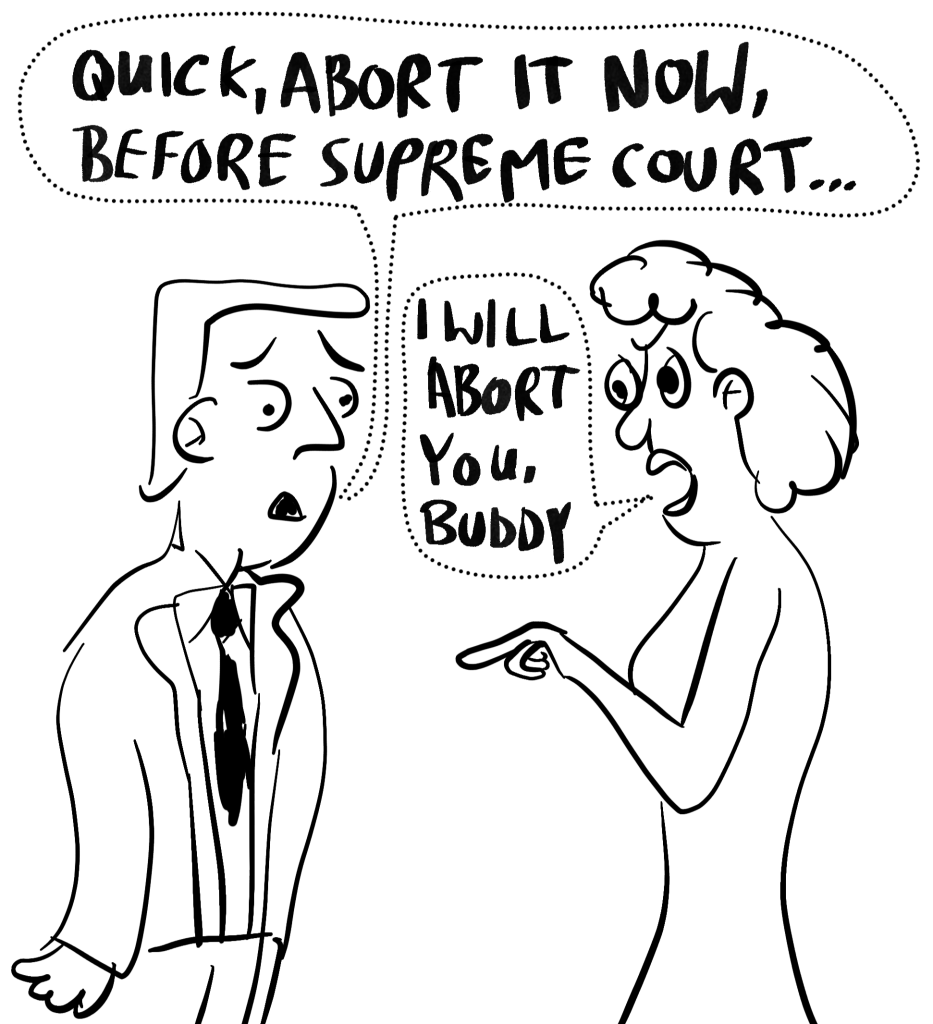 QUICK, ABORT IT NOW,
BEFORE SUPREME COURT...
I WILL
ABORT
YOU,
BUDDY